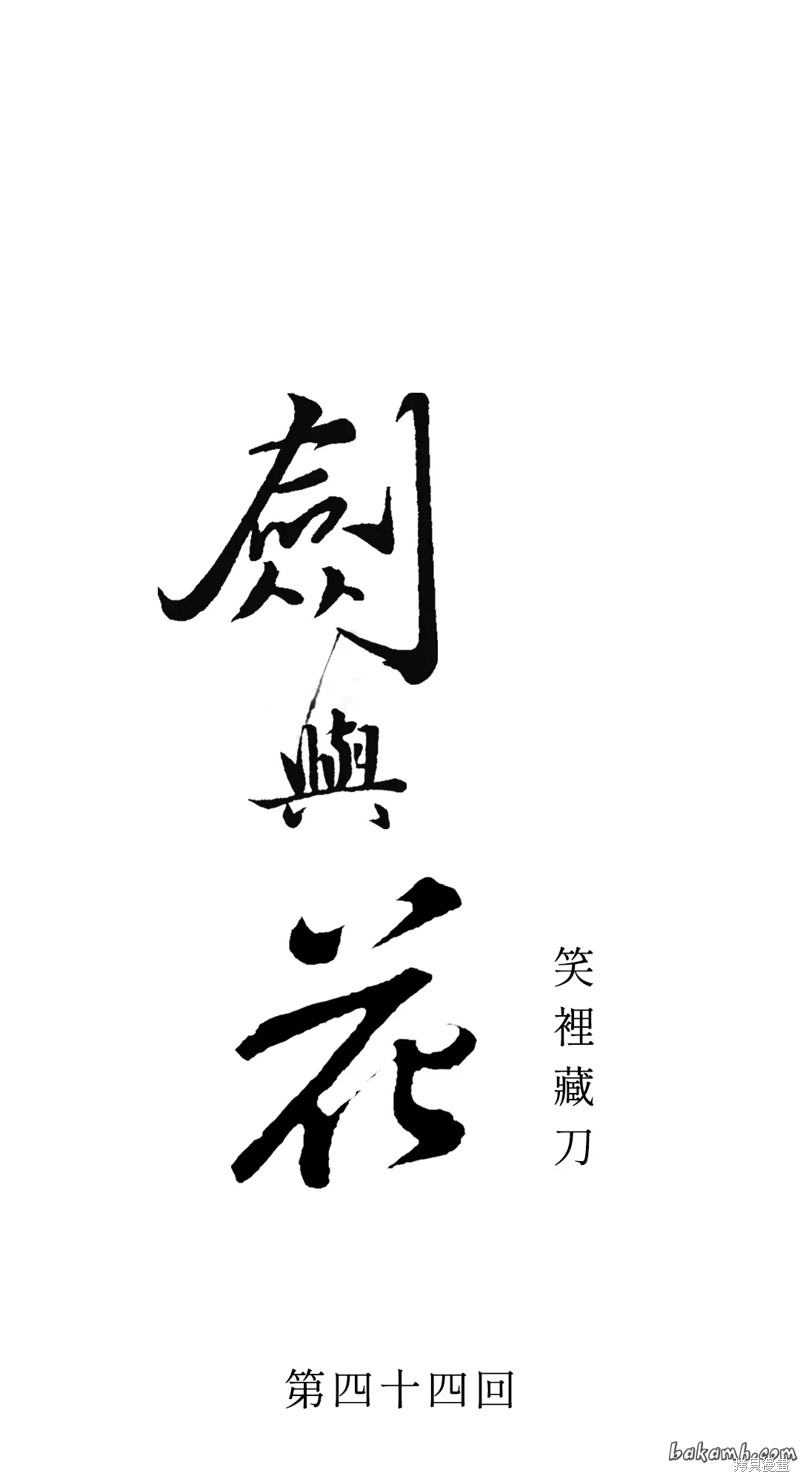 劍與花
笑裡藏刀
第四十四回
bakamh.com
拷貝漫畫